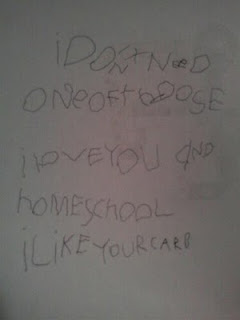 i DONT NEED
ONE OF THOOSE
i LOVE YOU AND
hOMESchOOL
iLiKE YOUR CARD